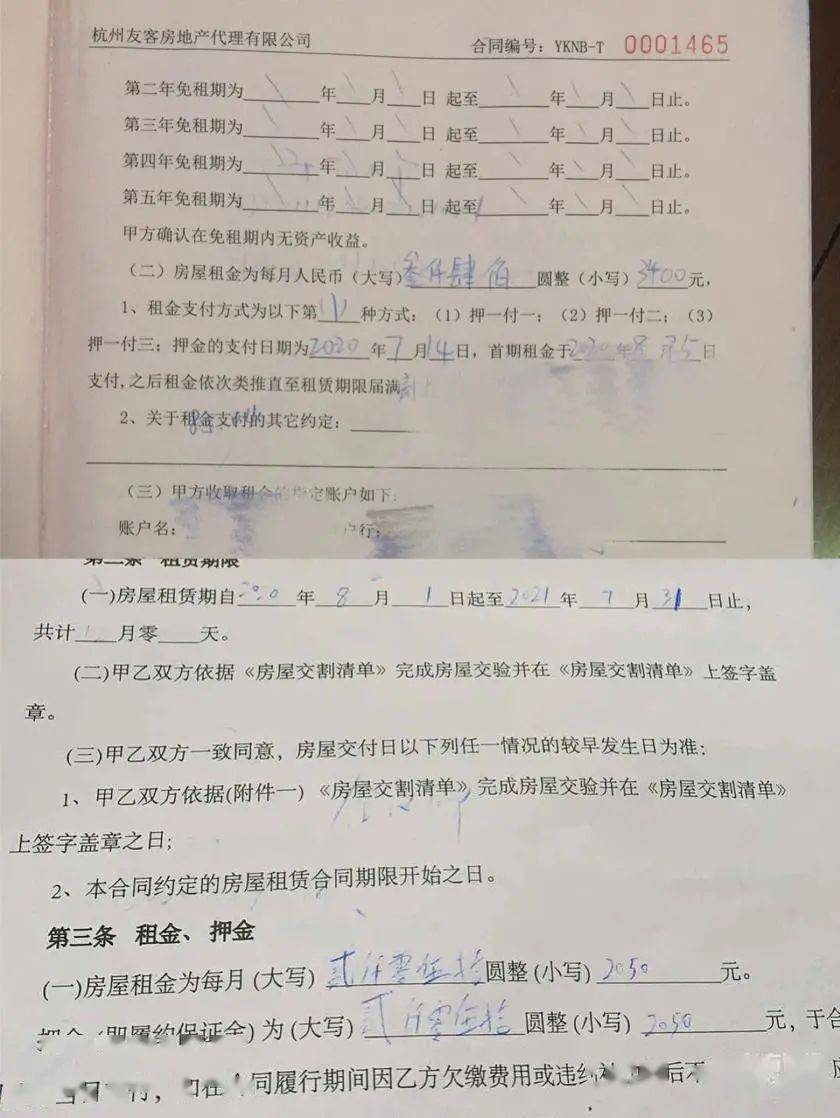 杭州友客房地产代理有限公司 合同编号：YKNB-T 0001465
第二年免租期为 年 月 日 起至 年 月 日止。
第三年免租期为 年 月 日 起至 年 月 日止。
第四年免租期为 年 月 日 起至 年 月 日止。
第五年免租期为 年 月 日 起至 年 月 日止。
甲方确认在免租期内无资产收益。
（二）房屋租金为每月人民币（大写）叁仟肆佰 圆整（小写）3400元，
1、租金支付方式为以下第(1)种方式：（1）押一付一；（2）押一付二；（3）
押一付三；押金的支付日期为2020年7月14日，首期租金于2020年8月 5日
支付,之后租金依次类推直至租赁期限届满
2、关于租金支付的其它约定：
（三）甲方收取租金的指定账户如下:
账户名： 户行：
第二条 租赁期限
(一)房屋租赁期自2020年8月1日起至2021年7月31日止，
共计 月零 天。
(二)甲乙双方依据《房屋交割清单》完成房屋交验并在《房屋交割清单》上签字盖
章。
(三)甲乙双方一致同意，房屋交付日以下列任一情况的较早发生日为准：
1、甲乙双方依据(附件一)《房屋交割清单》完成房屋交验并在《房屋交割清单》
上签字盖章之日;
2、本合同约定的房屋租赁合同期限开始之日。
第三条 租金、押金
(一)房屋租金为每月(大写)贰仟零伍拾圆整(小写)2050元。
押金（即履约保证金）为(大写)贰仟零伍拾圆整(小写)2050元，于合
同履行期间因乙方欠缴费用或违约 后不 应